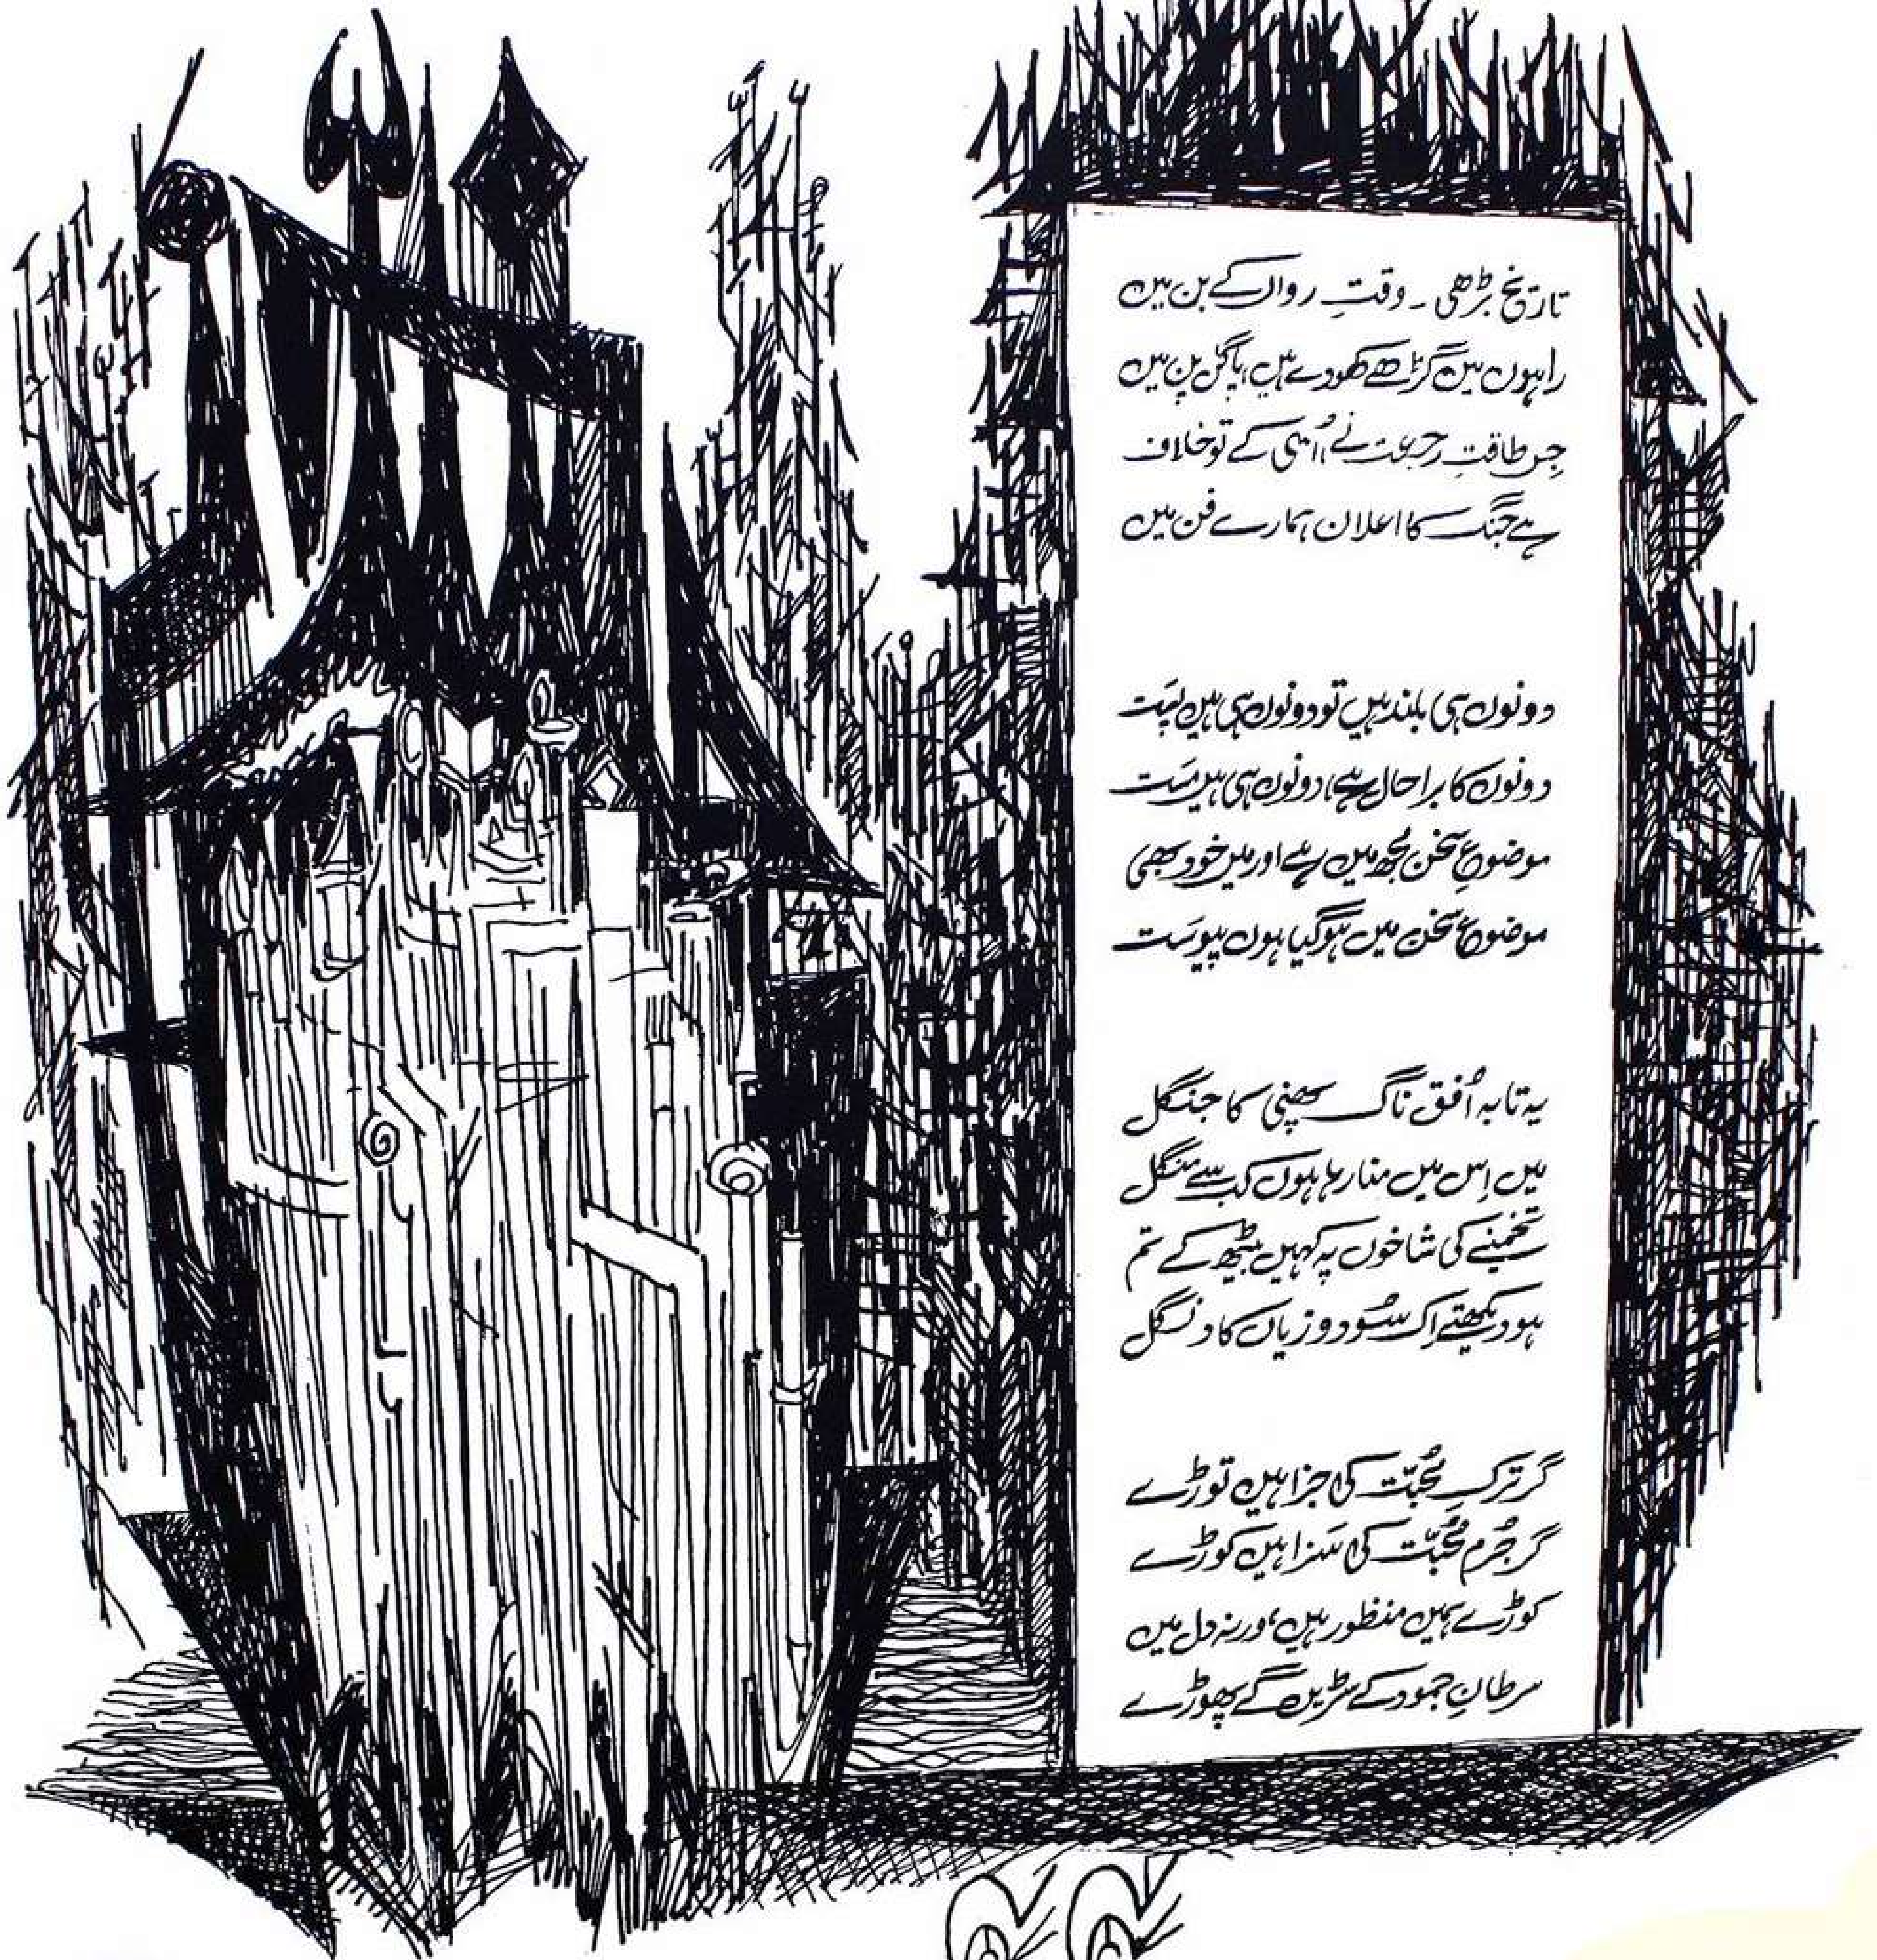 تاریخ بڑھی ۔ وقتِ رواں کے بن میں
راہوں میں گڑھے کھودے ہیں، پاگل پن میں
جس طاقتِ رجعت نے، اُسی کے تو خلاف
ہے جنگ کا اعلان ہمارے فن میں
دونوں ہی بلند ہیں تو دونوں ہی ہیں پَست
دونوں کا برا حال ہے، دونوں ہی ہیں مَست
موضوعِ سخن مجھ میں ہے اور میں خود بھی
موضوعِ سخن میں ہو گیا ہوں پیوَست
یہ تا بہ اُفق ناگ پھنی کا جنگل
میں اِس میں منا رہا ہوں کب سے منگل
تخمینے کی شاخوں پہ کہیں بیٹھ کے تم
ہو دیکھتے اک سُود و زیاں کا دنگل
گر ترکِ مُحبّت کی جزا ہیں توڑے
گر جُرمِ مُحبّت کی سَزا ہیں کوڑے
کوڑے ہمیں منظور ہیں، ورنہ دل میں
سرطانِ جمود کے سڑیں گے پھوڑے